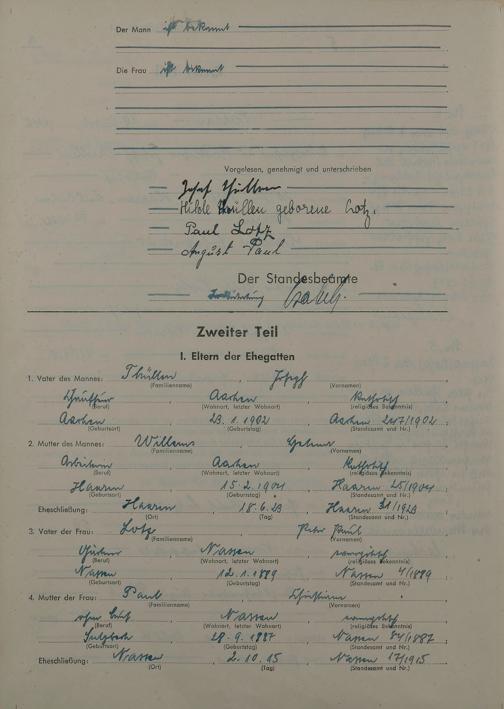 Der Mann ist bekannt
Die Frau ist bekannt
Vorgelesen, genehmigt und unterschrieben
Josef Thüllen
Hilde Thüllen geborene Lotz.
Paul Lotz
August Paul
Der Standesbeamte
In Vertretung
Zweiter Teil
I. Eltern der Ehegatten
1. Vater des Mannes: Thüllen, Joseph
(Familienname) (Vornamen)
Aachen, katholisch
(Beruf) (Wohnort, letzter Wohnort) (religiöses Bekenntnis)
Aachen, 23.1.1902, Aachen 247/1902
(Geburtsort) (Geburtstag) (Standesamt und Nr.)
2. Mutter des Mannes: Willems
(Familienname) (Vornamen)
Arbeiterin, Aachen, katholisch
(Beruf) (Wohnort, letzter Wohnort) (religiöses Bekenntnis)
Haaren, 15.2.1904, Haaren 25/1904
(Geburtsort) (Geburtstag) (Standesamt und Nr.)
Eheschließung: Haaren, 18.6.23, Haaren 31/1923
(Ort) (Tag) (Standesamt und Nr.)
3. Vater der Frau: Lotz, Peter Paul
(Familienname) (Vornamen)
Nassen, evangelisch
(Beruf) (Wohnort, letzter Wohnort) (religiöses Bekenntnis)
Nassen, 12.1.1889, Nassen 4/1889
(Geburtsort) (Geburtstag) (Standesamt und Nr.)
4. Mutter der Frau: Paul, Christine
(Familienname) (Vornamen)
ohne Beruf, Nassen, evangelisch
(Beruf) (Wohnort, letzter Wohnort) (religiöses Bekenntnis)
Sulzbach, 29.9.1887, Nassen 84/1887
(Geburtsort) (Geburtstag) (Standesamt und Nr.)
Eheschließung: Nassen, 2.10.15, Nassen 17/1915
(Ort) (Tag) (Standesamt und Nr.)